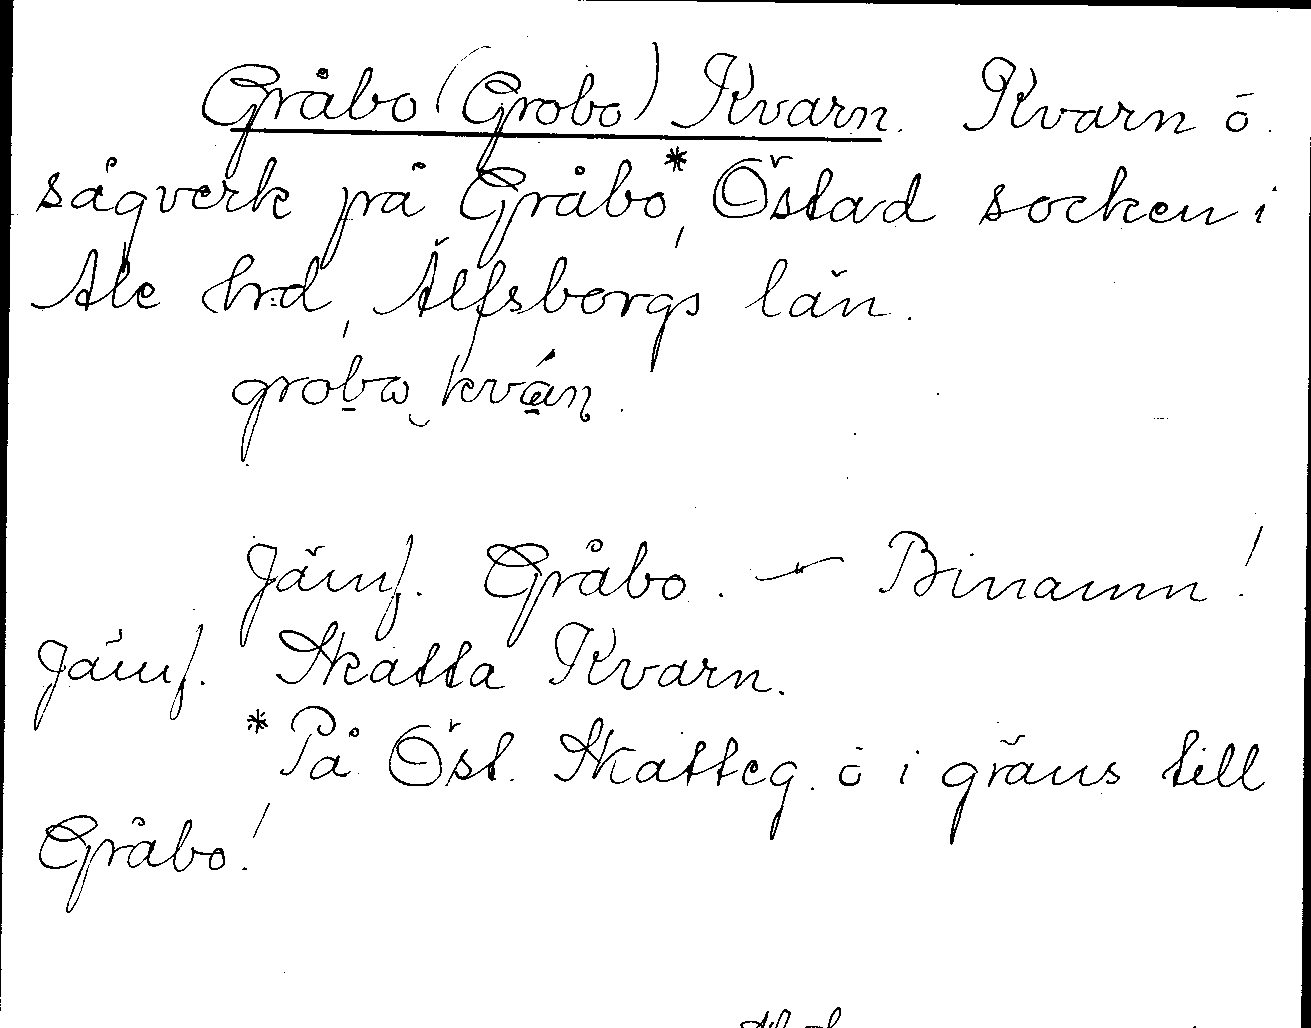 Gråbo (Grobo) Kvarn. Kvarn o.
sågverk på Gråbo*, Östad socken i
Ale hrd, Älfsborgs län.
groba kván.
Jämf. Gråbo. — Binamn!
Jämf. Skatta Kvarn.
* På Öst. Skatteg. o i gräns till
Gråbo!